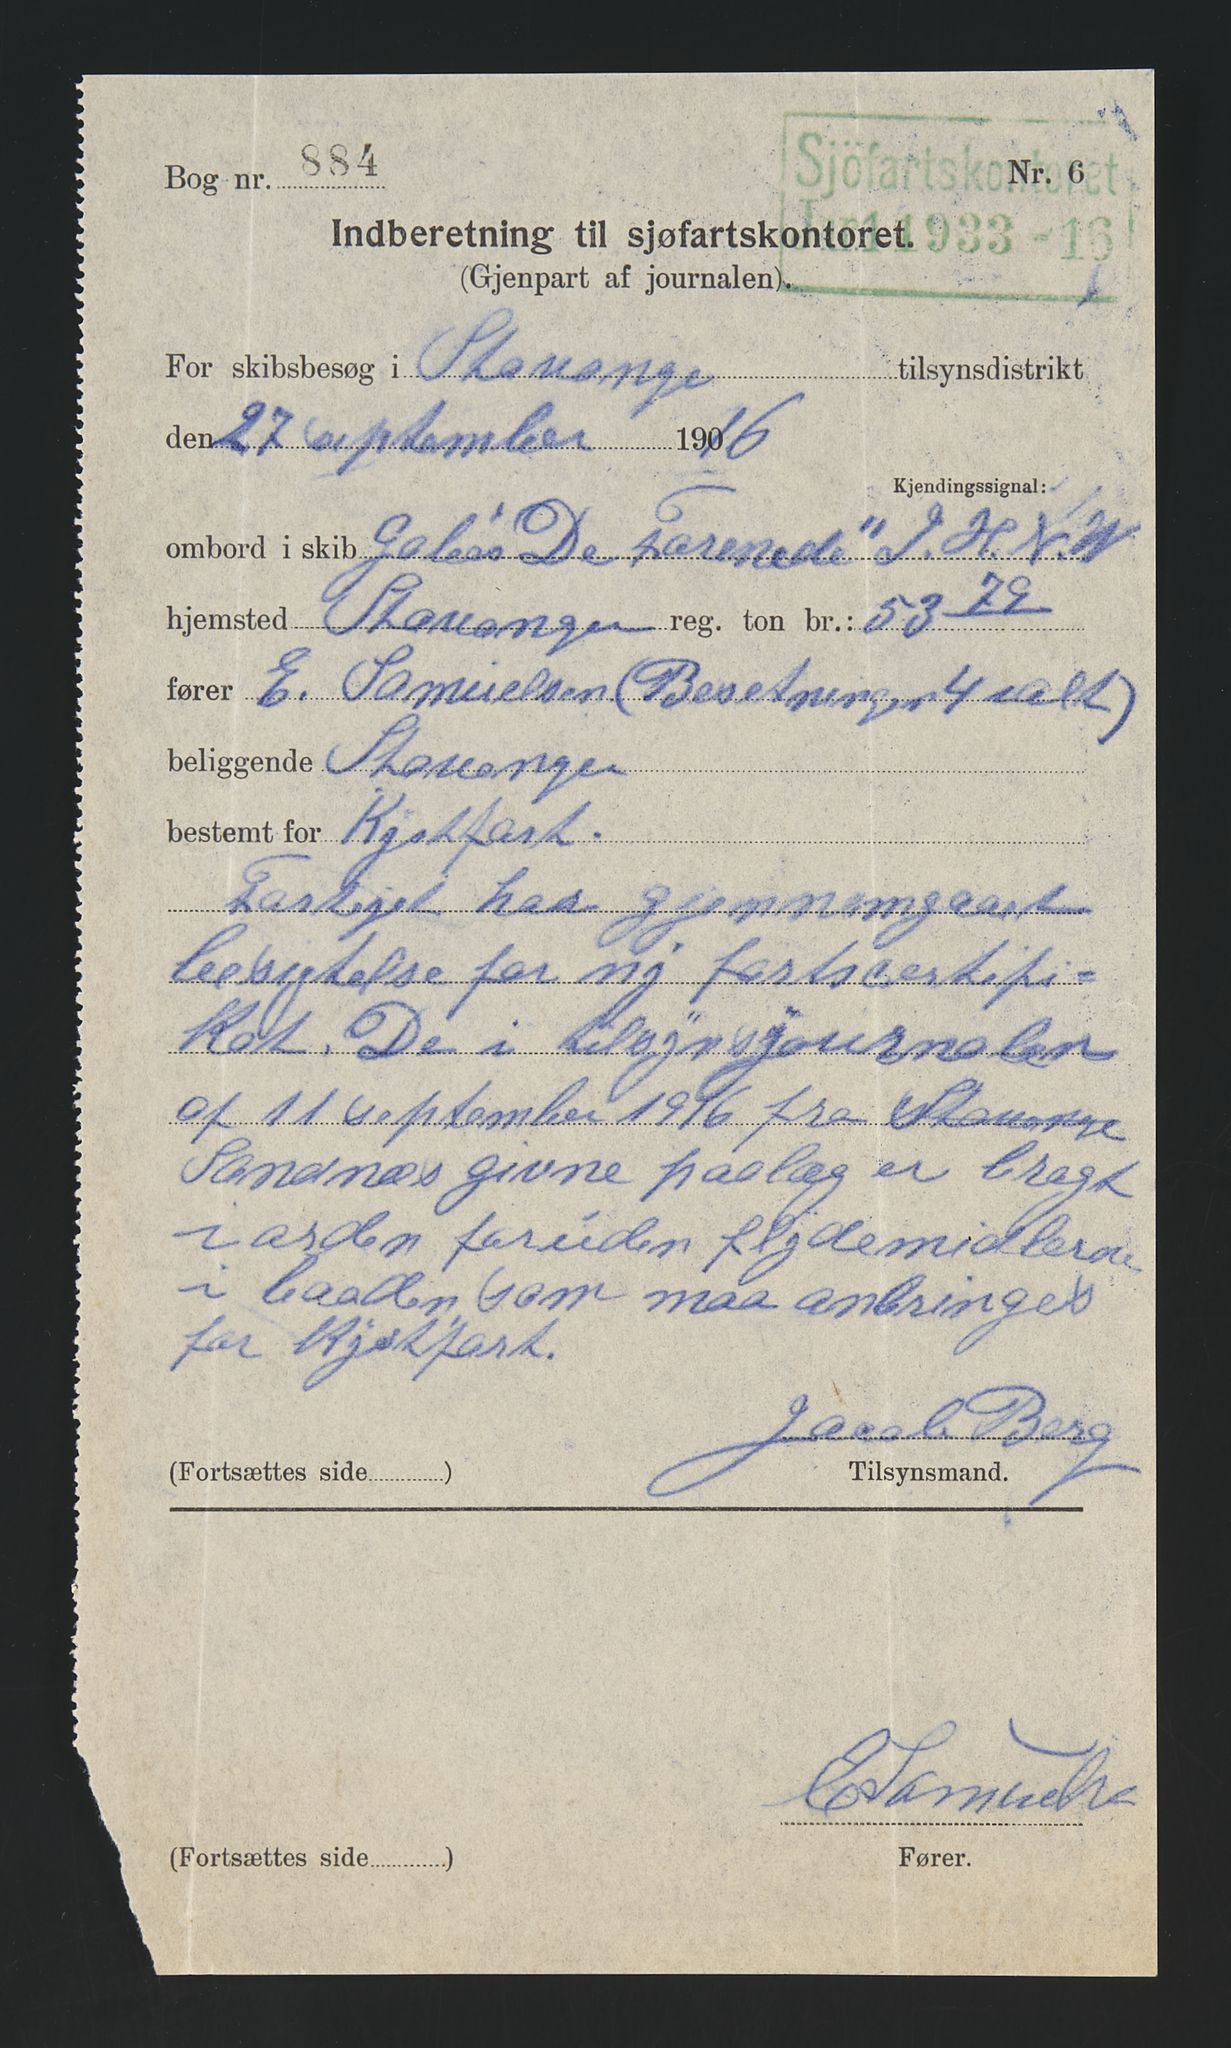 Bog nr. 884
Nr. 6
Sjöfartskontoret
Jnr 11933 - 16
Indberetning til sjøfartskontoret.
(Gjenpart af journalen).
For skibsbesøg i Stavange tilsynsdistrikt
den 27 september 1916
Kjendingssignal:
ombord i skib Galeas "De Forenede" J. H. N. W
hjemsted Stavanger reg. ton br.: 53 79
fører E. Samuelsen (Besetninger 4 alt)
beliggende Stavanger
bestemt for Kystfart.
Fartöjet har gjennemgaaet
besigtelse for ny fartscertifi=
kat. De i tilsynsjournalen
af 11 september 1916 fra Stavange
Sandnæs givne paalæg er bragt
i orden foruden flydemidlerne
i baaden, som maa anbringes
for Kystfart.
Jacob Berg
(Fortsættes side ) Tilsynsmand.
E Samuelse
(Fortsættes side ) Fører.